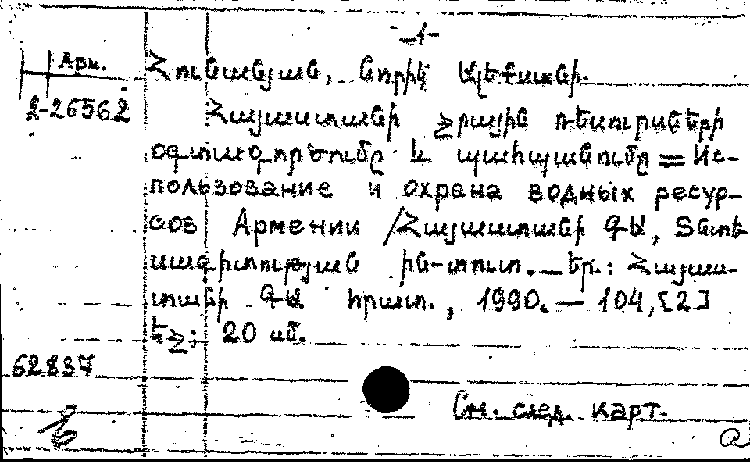 -1-
Арм.
Հունանյան, Նորիկ Ալեքսանի.
2-26562
Հայաստանի ջրային ռեսուրսների
օգտագործումը և պահպանումը = Ис-
пользование и охрана водных ресур-
сов Армении /Հայաստանի ԳԱ, Տնտե
սագիտության ին-տուտ. — Եր.: Հայաս-
տանի ԳԱ հրատ., 1990. — 104, [2]
էջ; 20 սմ.
62837
См. след. карт.